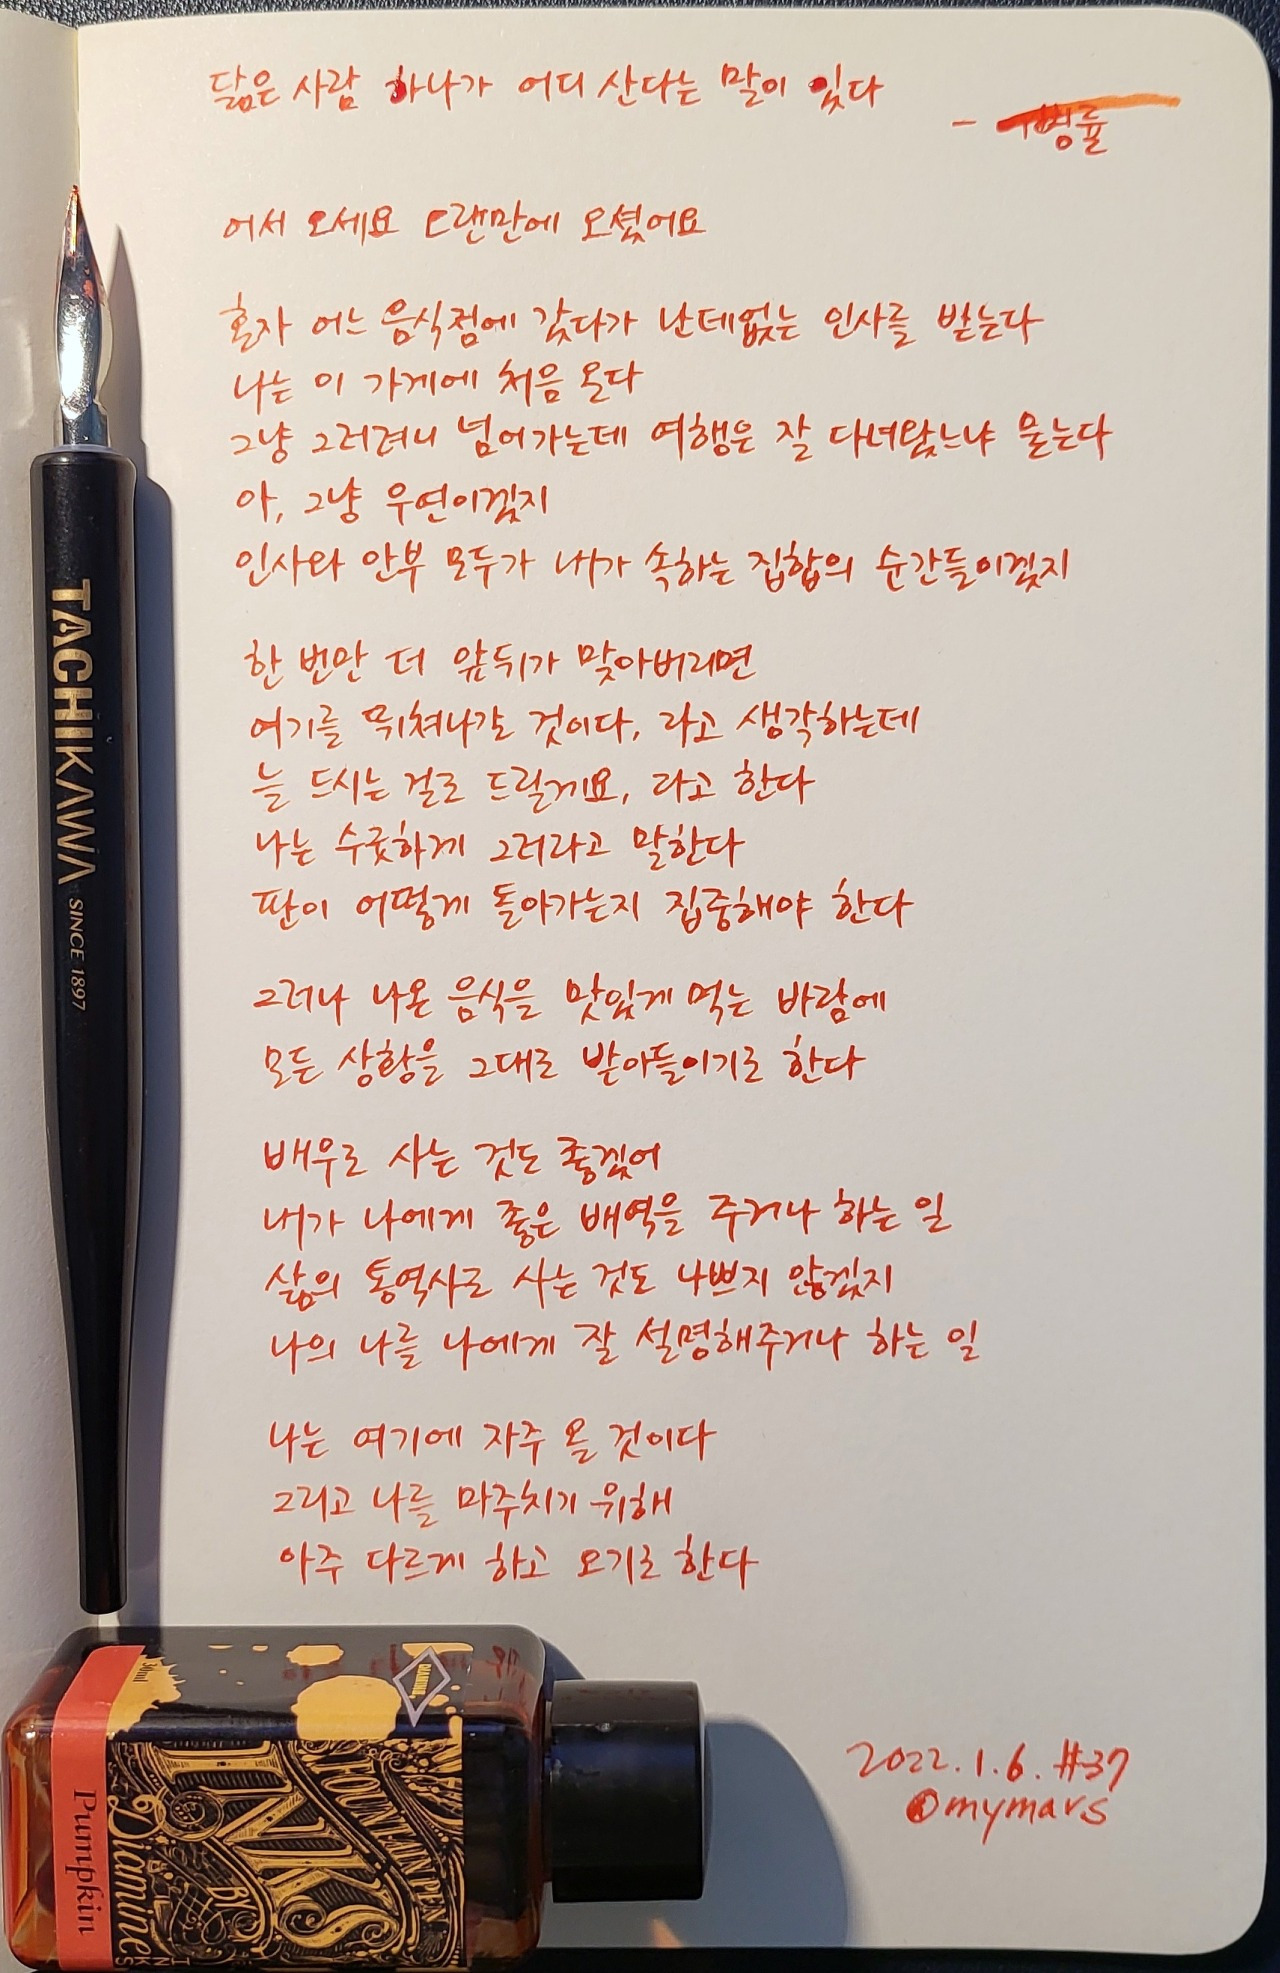 닮은 사람 하나가 어디 산다는 말이 있다
- 병률
어서 오세요 오랜만에 오셨어요
혼자 어느 음식점에 갔다가 난데없는 인사를 받는다
나는 이 가게에 처음 온다
그냥 그러려니 넘어가는데 여행은 잘 다녀왔느냐 묻는다
아, 그냥 우연이겠지
인사와 안부 모두가 내가 속하는 집합의 순간들이겠지
한 번만 더 앞뒤가 맞아버리면
여기를 뛰쳐나갈 것이다, 라고 생각하는데
늘 드시는 걸로 드릴게요, 라고 한다
나는 수긋하게 그러라고 말한다
판이 어떻게 돌아가는지 집중해야 한다
그러나 나온 음식을 맛있게 먹는 바람에
모든 상황을 그대로 받아들이기로 한다
배우로 사는 것도 좋겠어
내가 나에게 좋은 배역을 주거나 하는 일
삶의 통역사로 사는 것도 나쁘지 않겠지
나의 나를 나에게 잘 설명해주거나 하는 일
나는 여기에 자주 올 것이다
그리고 나를 마주치기 위해
아주 다르게 하고 오기로 한다
2022.1.6. #37
@mymars
TACHIKAWA SINCE 1897
30ml
DIAMINE
FOUNTAIN PEN
INKS
BY
Diamine
INKS
Pumpkin